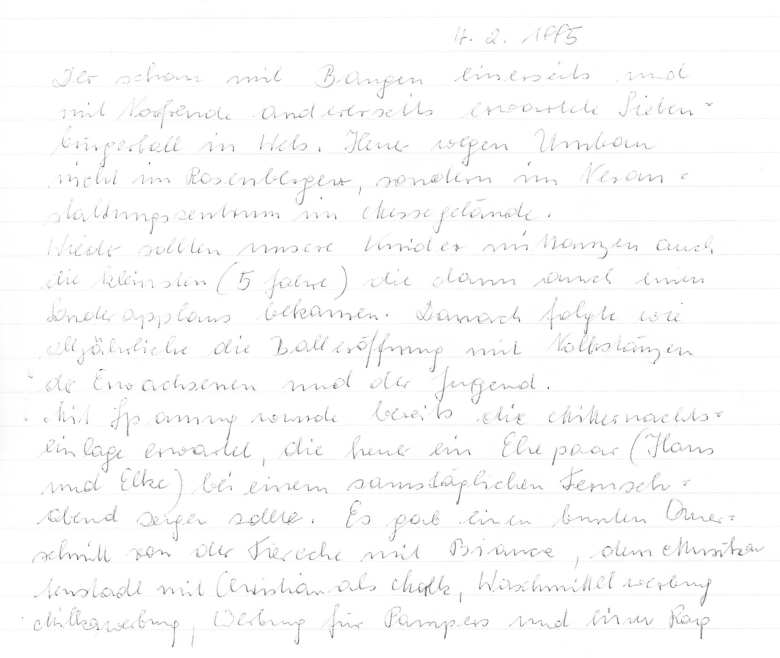 4. 2. 1995
Der schon mit Bangen einerseits und
mit Vorfreude andererseits erwartete Sieben-
bürgerball in Wels. Heuer wegen Umbau
nicht im Rosenberger, sondern im Veran-
staltungszentrum im Messegelände.
Wieder sollten unsere Kinder mittanzen auch
die kleinsten (5 Jahre) die dann auch einen
Sonderapplaus bekamen. Danach folgte wie
alljährliche die Balleröffnung mit Volkstänzen
der Erwachsenen und der Jugend.
Mit Spannung wurde bereits die Mitternachts-
einlage erwartet, die heuer ein Ehepaar (Hans
und Elke) bei einem samstäglichen Fernseh-
abend zeigen sollte. Es gab einen bunten Quer-
schnitt von der Tierecke mit Bianca, dem Musikan
tenstadl mit Christian als Moik, Waschmittelwerbung
Milkawerbung, Werbung für Pampers und einen Rap